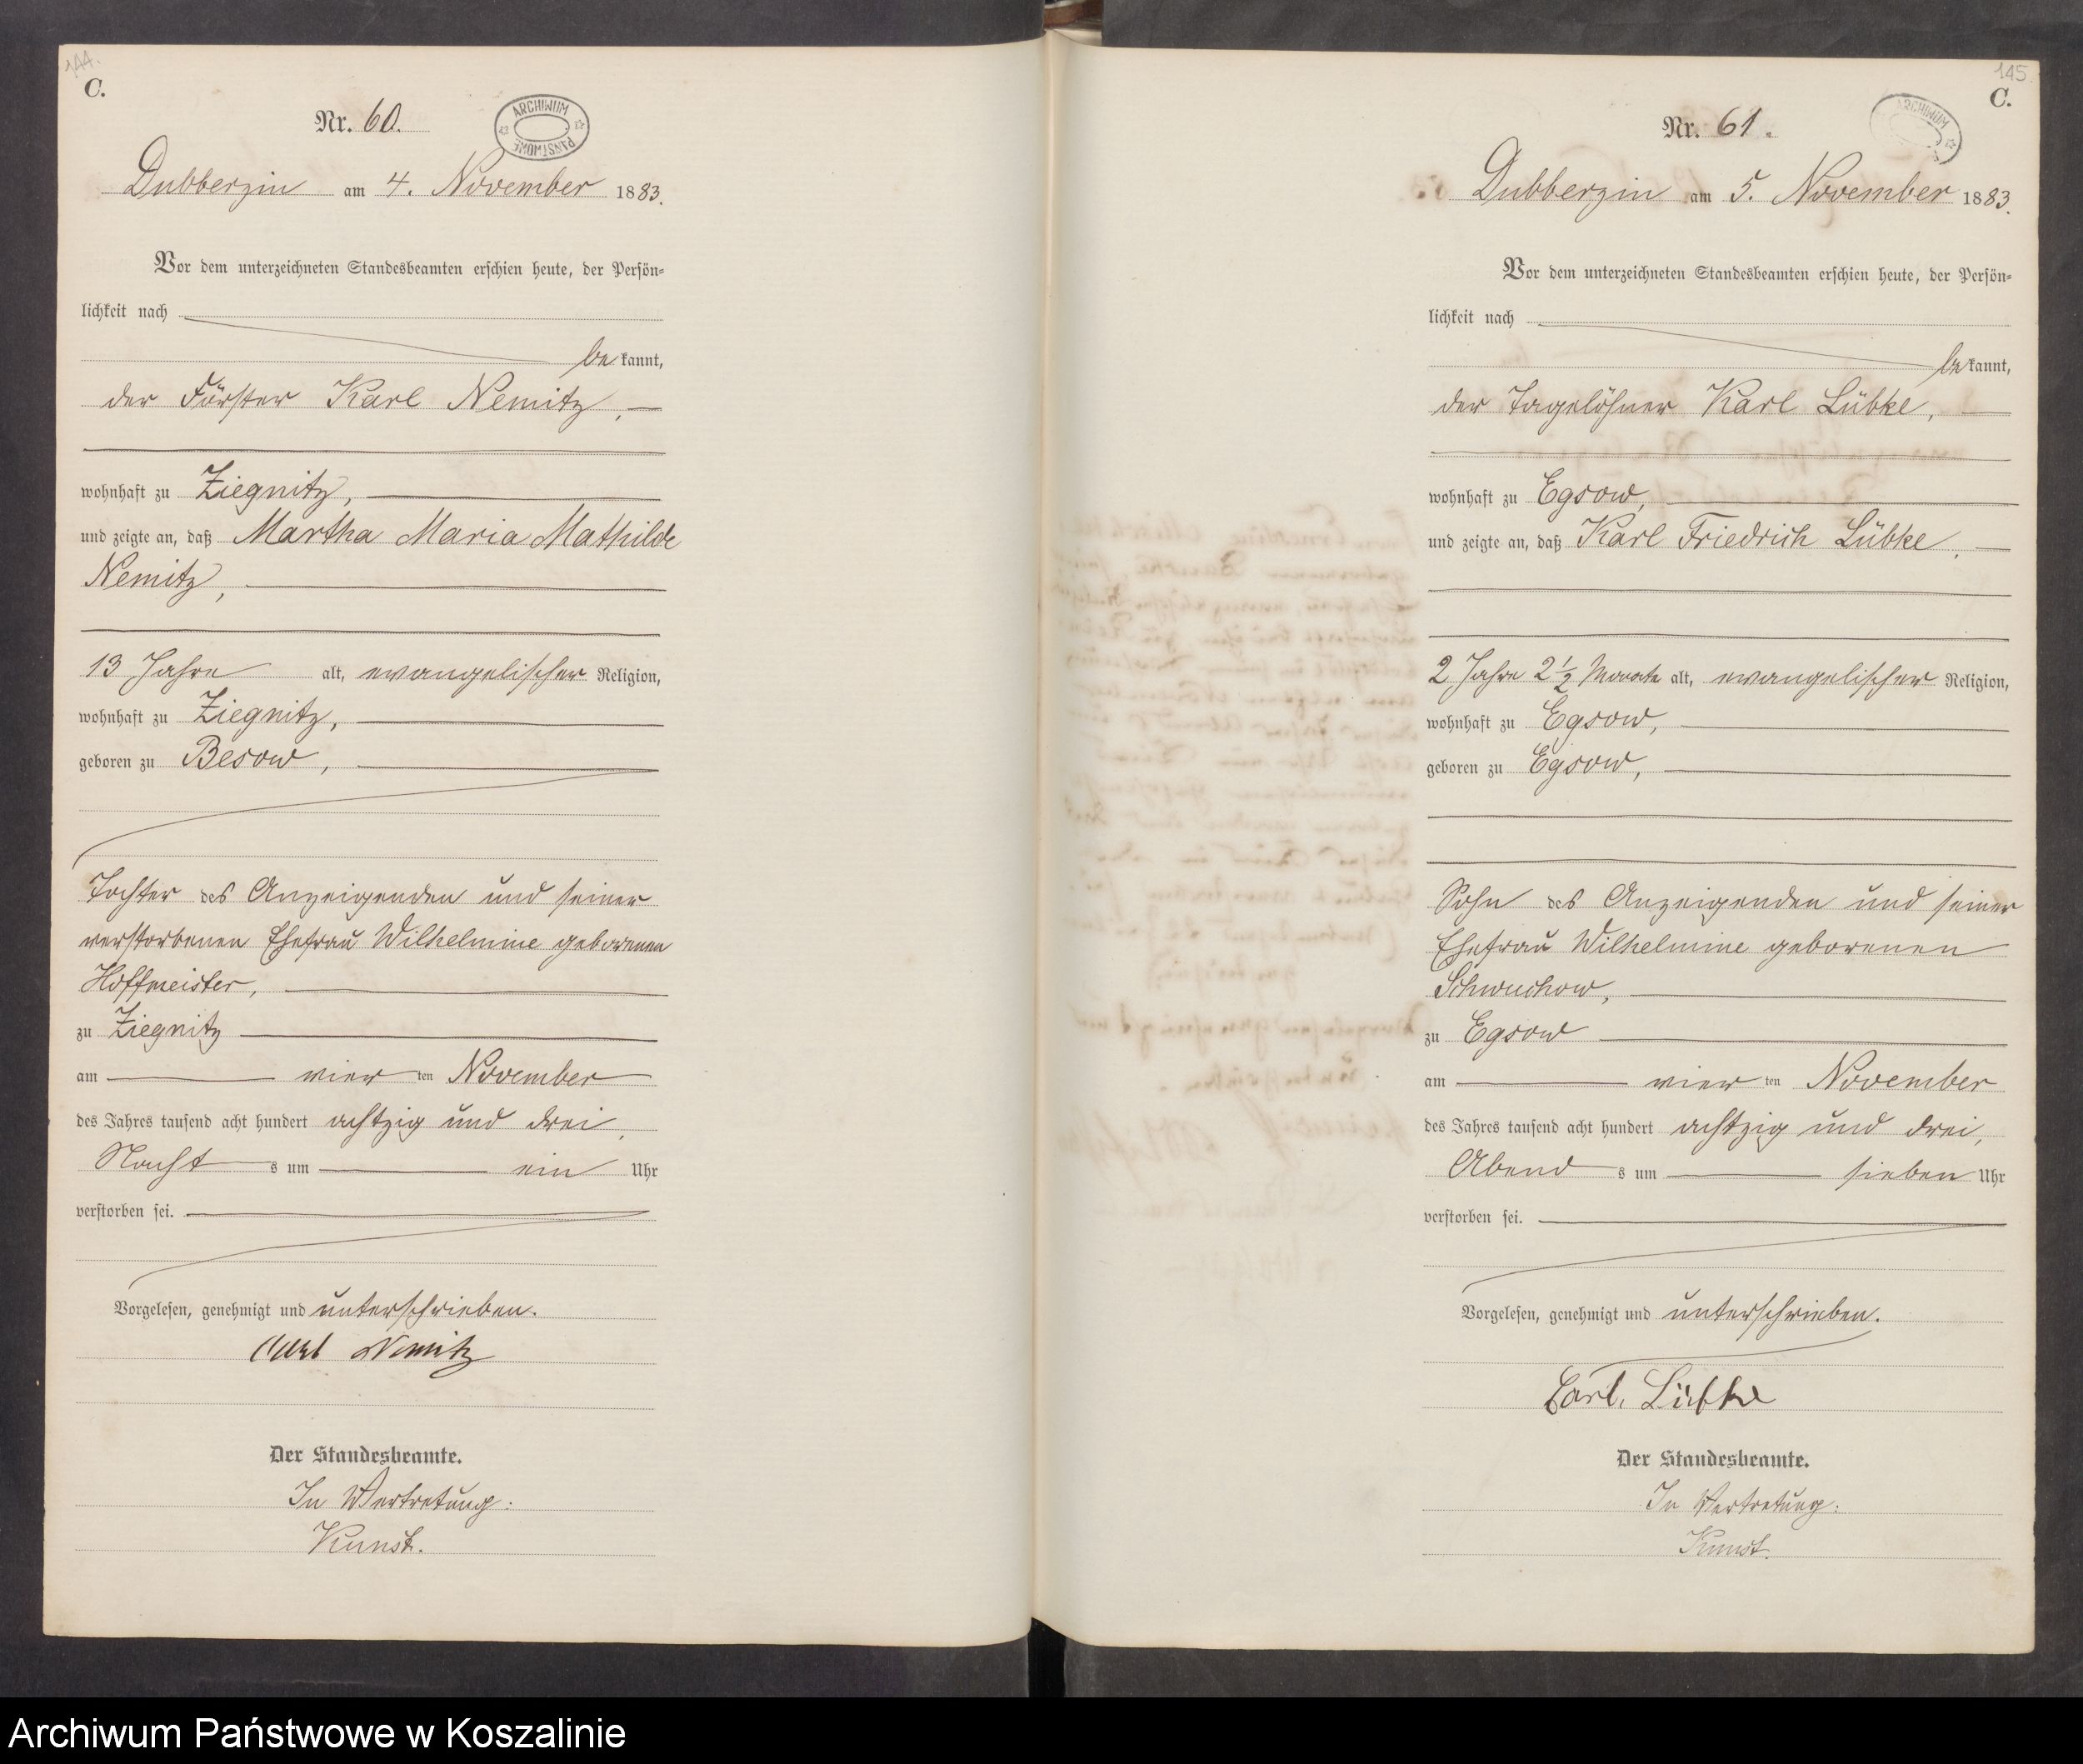 144.
C.
Nr. 60.
ARCHIWUM PAŃSTWOWE
Dubberzin am 4. November 1883.
Vor dem unterzeichneten Standesbeamten erschien heute, der Persön-
lichkeit nach
be kannt,
der Förster Karl Nemitz,
wohnhaft zu Ziegnitz,
und zeigte an, daß Martha Maria Mathilde
Nemitz,
13 Jahre alt, evangelischer Religion,
wohnhaft zu Ziegnitz,
geboren zu Besow,
Tochter des Anzeigenden und seiner
verstorbenen Ehefrau Wilhelmine geborenen
Hoffmeister,
zu Ziegnitz
am vier ten November
des Jahres tausend acht hundert achtzig und drei,
Nacht s um ein Uhr
verstorben sei.
Vorgelesen, genehmigt und unterschrieben.
Carl Nemitz
Der Standesbeamte.
In Vertretung:
Kunst.
145
C.
Nr. 61.
ARCHIWUM
Dubberzin am 5. November 1883.
Vor dem unterzeichneten Standesbeamten erschien heute, der Persön-
lichkeit nach
be kannt,
der Tagelöhner Karl Lübke,
wohnhaft zu Egsow,
und zeigte an, daß Karl Friedrich Lübke,
2 Jahre 2 1/2 Monate alt, evangelischer Religion,
wohnhaft zu Egsow,
geboren zu Egsow,
Sohn des Anzeigenden und seiner
Ehefrau Wilhelmine geborenen
Schwuchow,
zu Egsow
am vier ten November
des Jahres tausend acht hundert achtzig und drei,
Abend s um sieben Uhr
verstorben sei.
Vorgelesen, genehmigt und unterschrieben.
Carl Lübke
Der Standesbeamte.
In Vertretung:
Kunst.
Archiwum Państwowe w Koszalinie